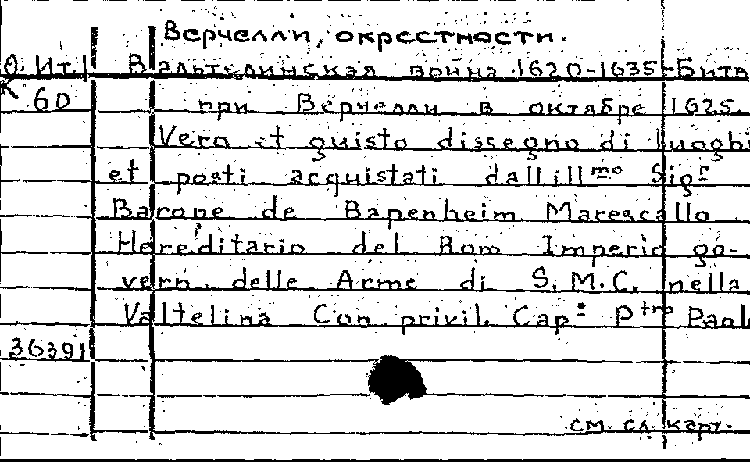 Верчелли, окрестности.
О. Ит. Вальтелинская война 1620-1635-Битв
К 60 при Верчелли в октябре 1625.
Vero et guisto dissegno di luoghi
et posti acquistati dall ill mo Sig r
Barone de Bapenheim Marescallo
Hereditario del Rom Imperio go-
vern. delle Arme di S. M. C. nella
Valtelina Con privil. Cap. P tro Paol
36391
см. сл. карт.